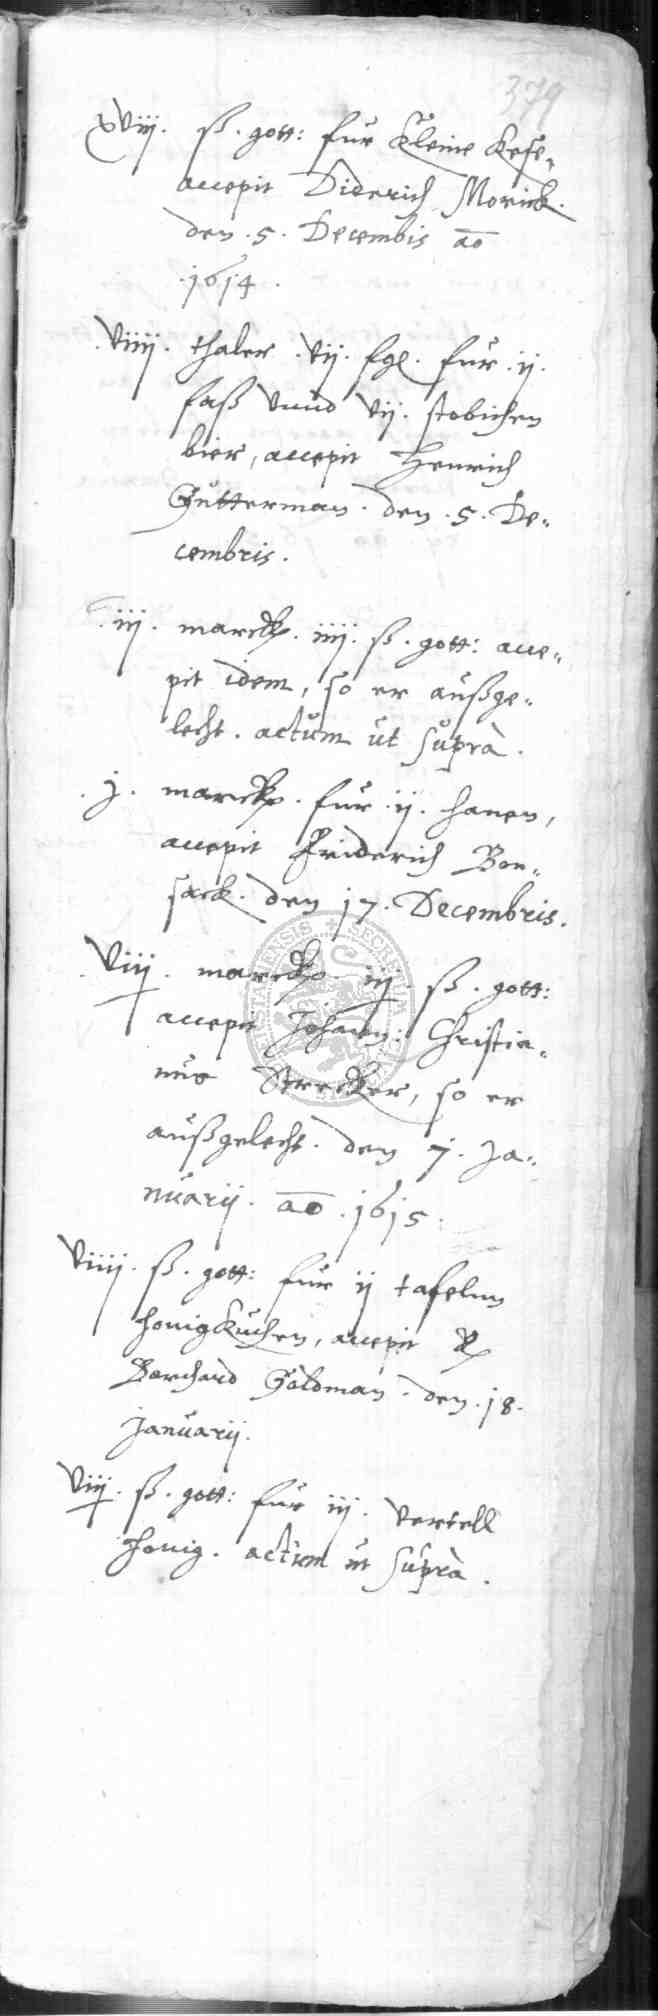 379
xviij. ß. gott: fur kleine kese,
accepit Diderich Morick.
den .5. Decembis ao
.1614.
.viiij. thaler .vij. fgl. fur .ij.
faß vnnd vij. stobichen
bier, accepit Henrich
Gutterman. den .5. De,,
cembris.
.iij. marck. iiij. ß. gott: acce,,
pit idem, so er außge,,
lecht. actum ut suprà.
.j. marck. fur .ij. hanen,
accepit Friderich Bon,,
sack. den 17. Decembris.
.viij. marck iij. ß. gott:
accepit Johann: Christia,,
nus Strecker, so er
außgelecht. den 7. Ja,,
nuarij. ao .1615.
viiij. ß. gott: fur ij tafelnn
honigkuchen, accepit
Borchard Goldman. den .18.
Januarij.
viij. ß. gott: fur iij. vertell
honig. actum ut suprà.
SECRETUM